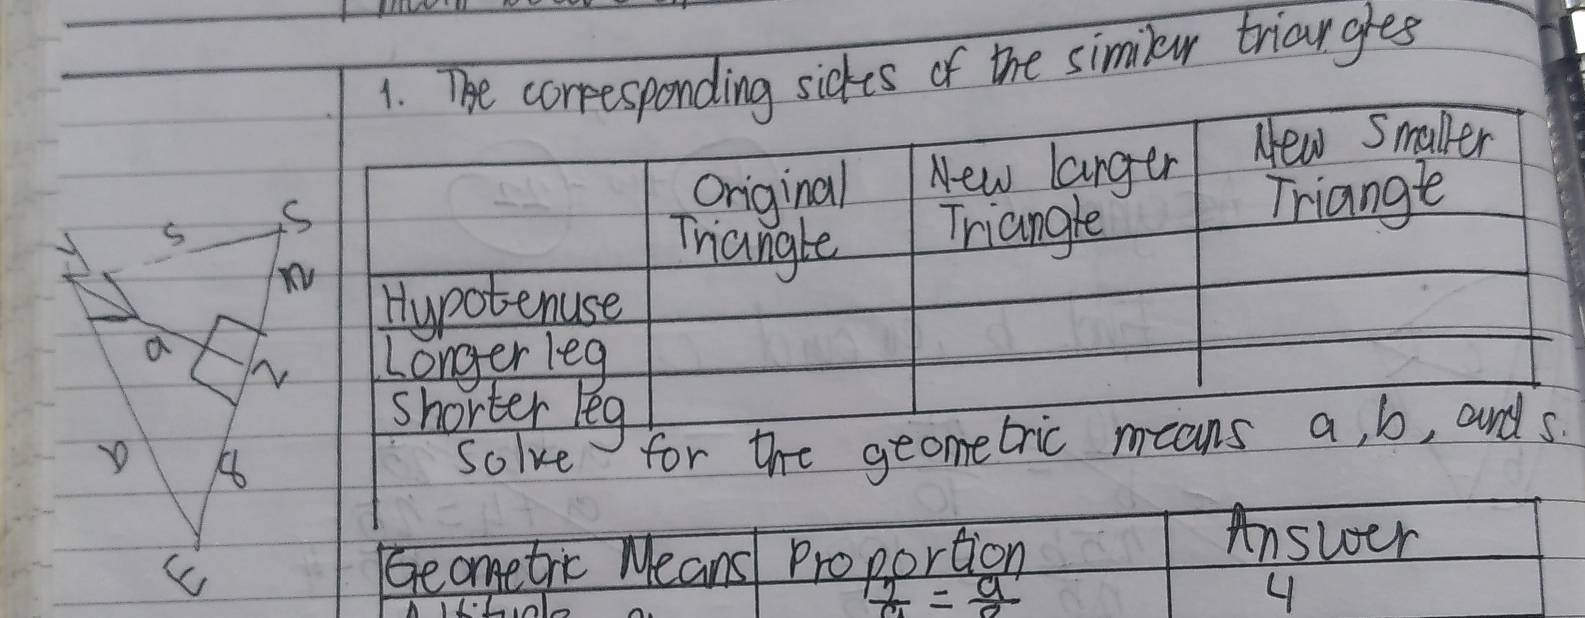 1. The corresponding sides of the similar triangles
Original Triangle
New larger Triangle
New Smaller Triangle
Hypotenuse
Longer leg
Shorter leg
Solve for the geometric means a, b, and s.
Geometric Means
Proportion
Answer
Altitude a
2/a = a/8
4
Y
s
S
2
a
Z
b
8
E